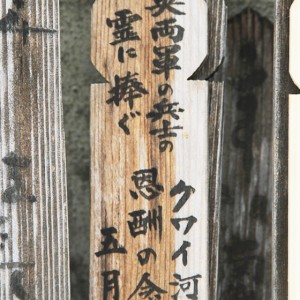 英両軍の兵士の
霊に捧ぐ
クワイ河
恩酬の会
五月